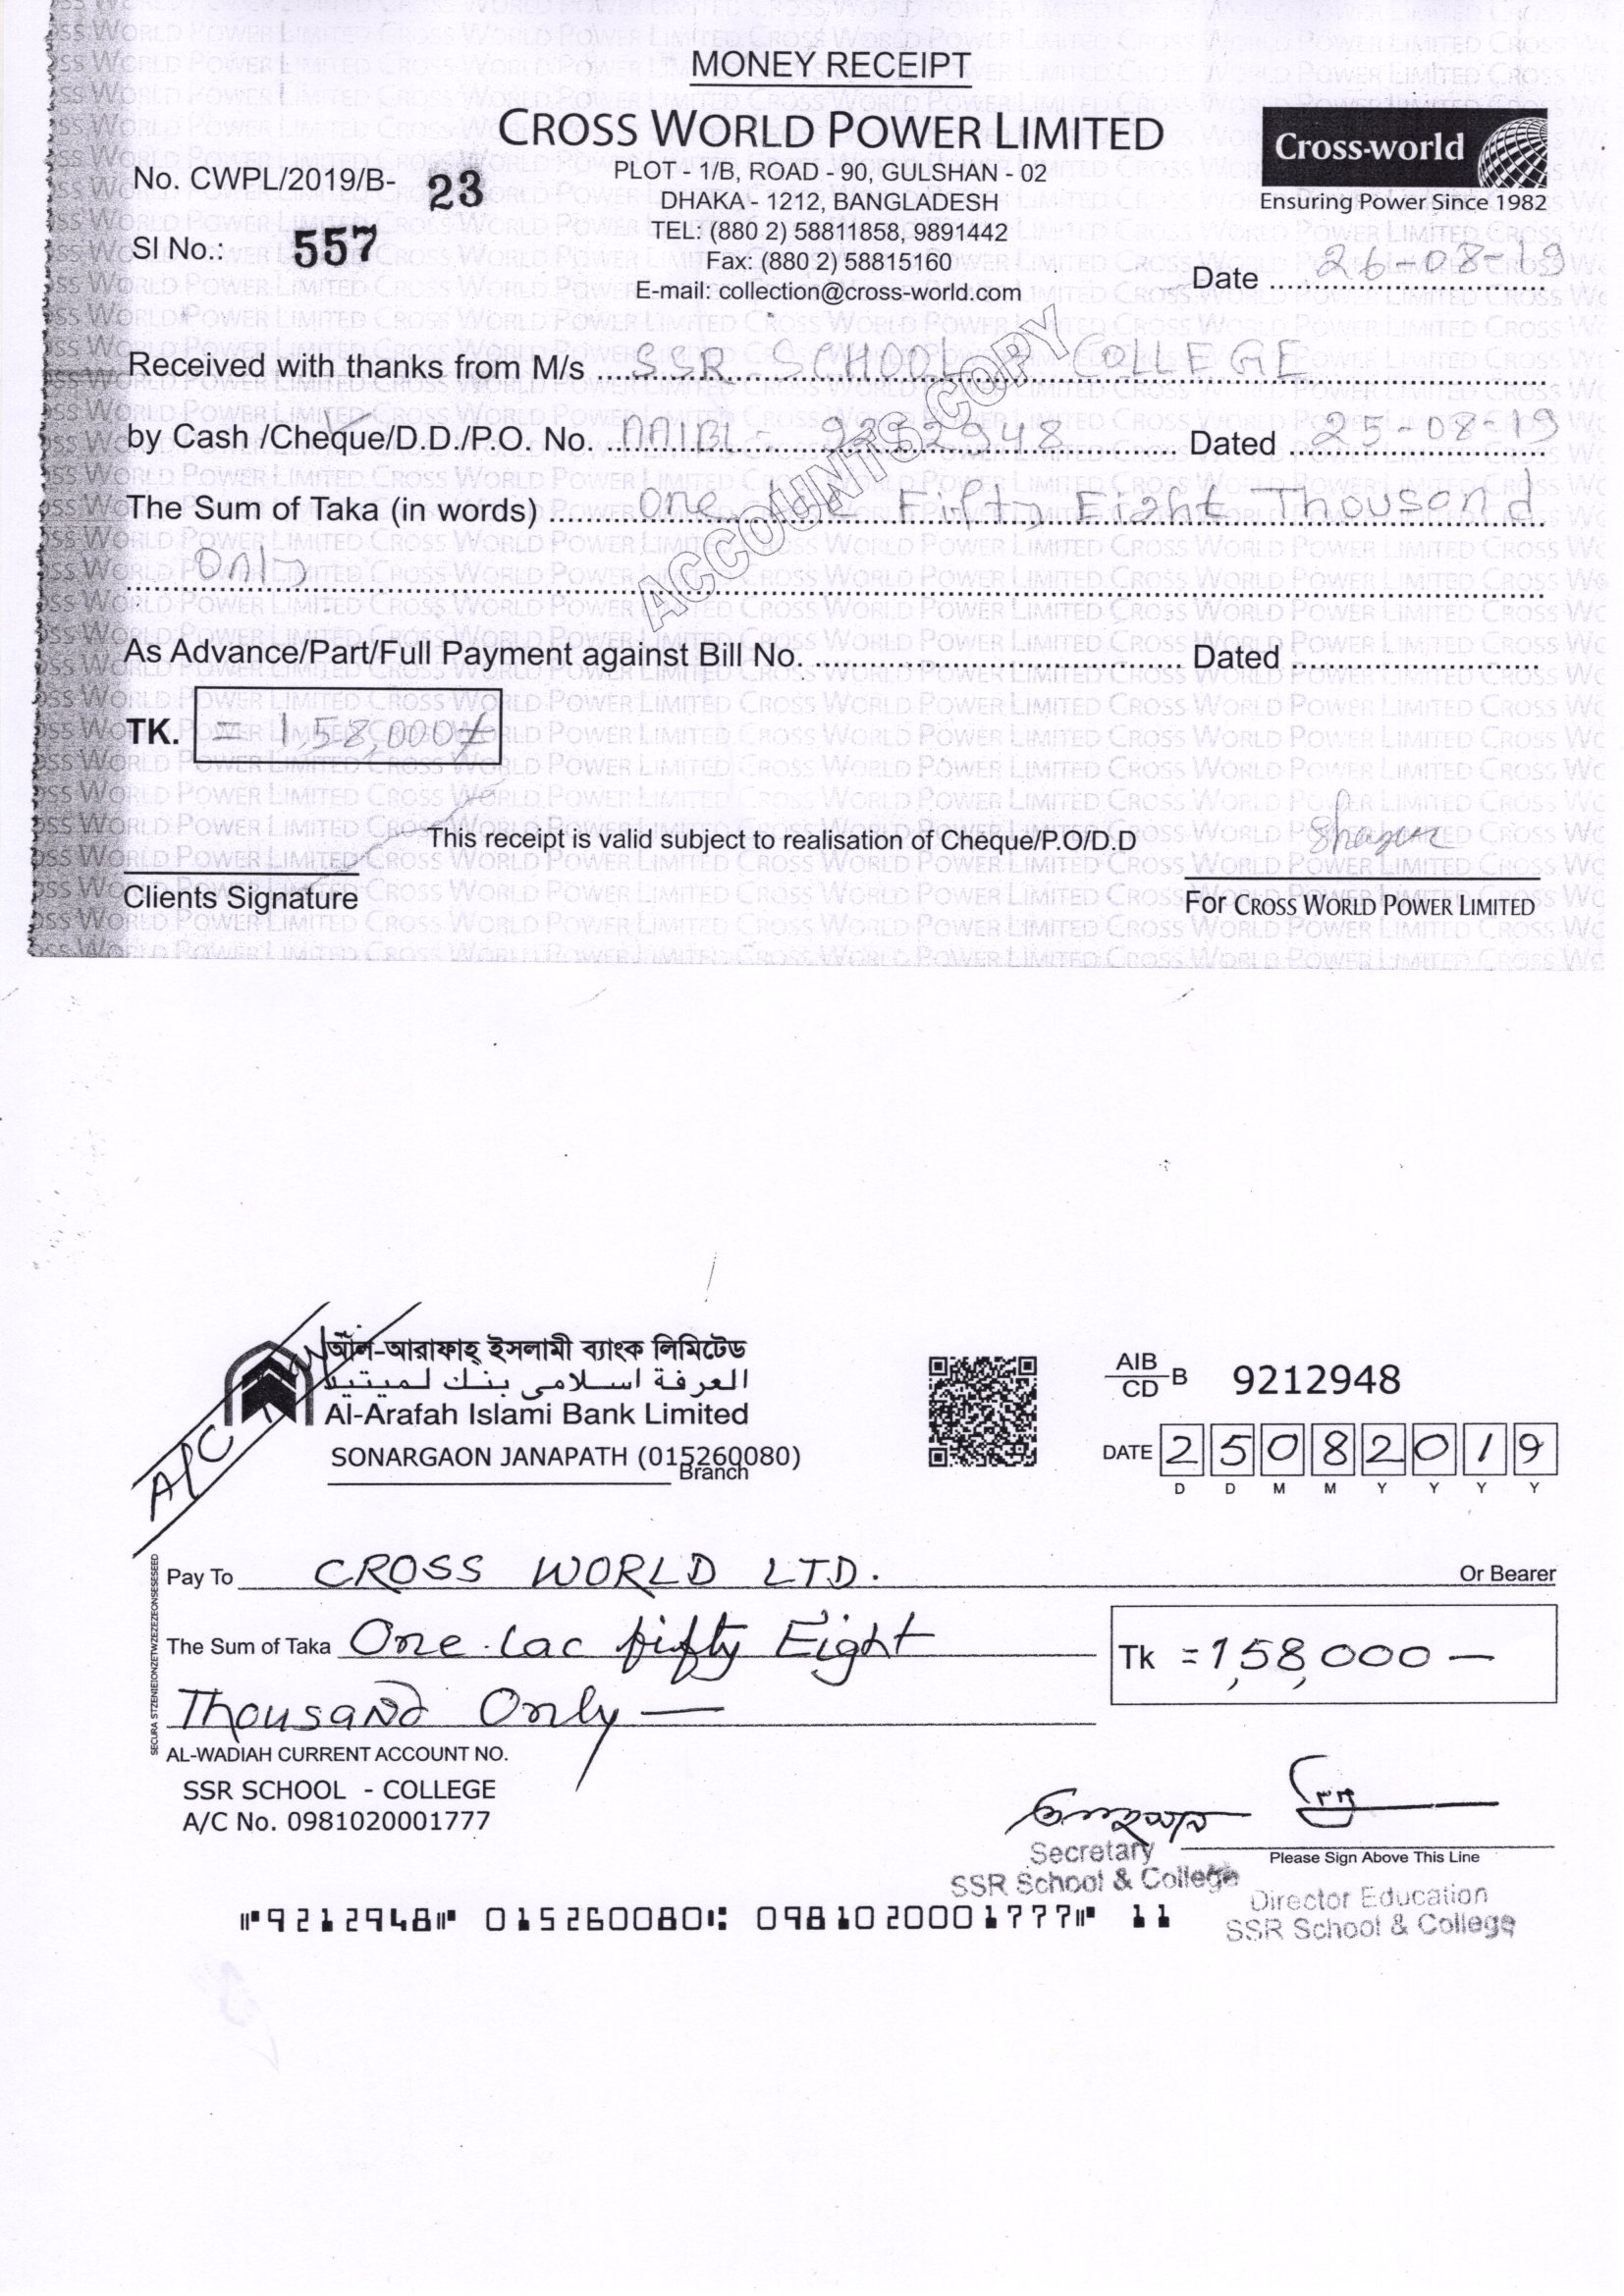 MONEY RECEIPT
CROSS WORLD POWER LIMITED
Cross-world
Ensuring Power Since 1982
No. CWPL/2019/B- 23
PLOT - 1/B, ROAD - 90, GULSHAN - 02
DHAKA - 1212, BANGLADESH
SI No.: 557
TEL: (880 2) 58811858, 9891442
Fax: (880 2) 58815160
E-mail: collection@cross-world.com
Date 26-08-19
Received with thanks from M/s SSR SCHOOL COLLEGE
by Cash /Cheque/D.D./P.O. No. Dated 25-08-19
The Sum of Taka (in words) One Fifty Eight Thousand
Only
ACCOUNTS COPY
As Advance/Part/Full Payment against Bill No. Dated
TK. = 1,58,000/=
This receipt is valid subject to realisation of Cheque/P.O/D.D
Clients Signature
For CROSS WORLD POWER LIMITED
আল-আরাফাহ্ ইসলামী ব্যাংক লিমিটেড
العرفة اسلامى بنك لميتيد
Al-Arafah Islami Bank Limited
SONARGAON JANAPATH (015260080)
Branch
A/C
AIB
CD B 9212948
DATE 2 5 0 8 2 0 1 9
D D M M Y Y Y Y
Pay To CROSS WORLD LTD. Or Bearer
The Sum of Taka One Lac fifty Eight
Tk =1,58,000 —
Thousand Only —
AL-WADIAH CURRENT ACCOUNT NO.
SSR SCHOOL - COLLEGE
A/C No. 0981020001777
Please Sign Above This Line
Secretary
SSR School & College
Director Education
SSR School & College
⑈9212948⑈ 015260080⑆ 0981020001777⑈ 11